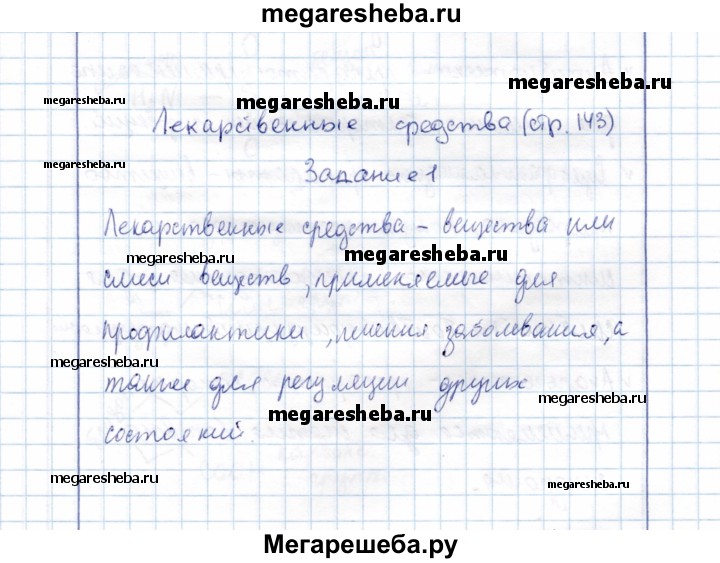 megaresheba.ru
megaresheba.ru
megaresheba.ru megaresheba.ru
Лекарственные средства (стр. 143)
megaresheba.ru
Задание 1
Лекарственные средства – вещества или
megaresheba.ru megaresheba.ru
смеси веществ, применяемые для
профилактики, лечения заболевания, а
megaresheba.ru
также для регуляции других
megaresheba.ru
megaresheba.ru
состояний.
megaresheba.ru
megaresheba.ru
Мегарешеба.ру